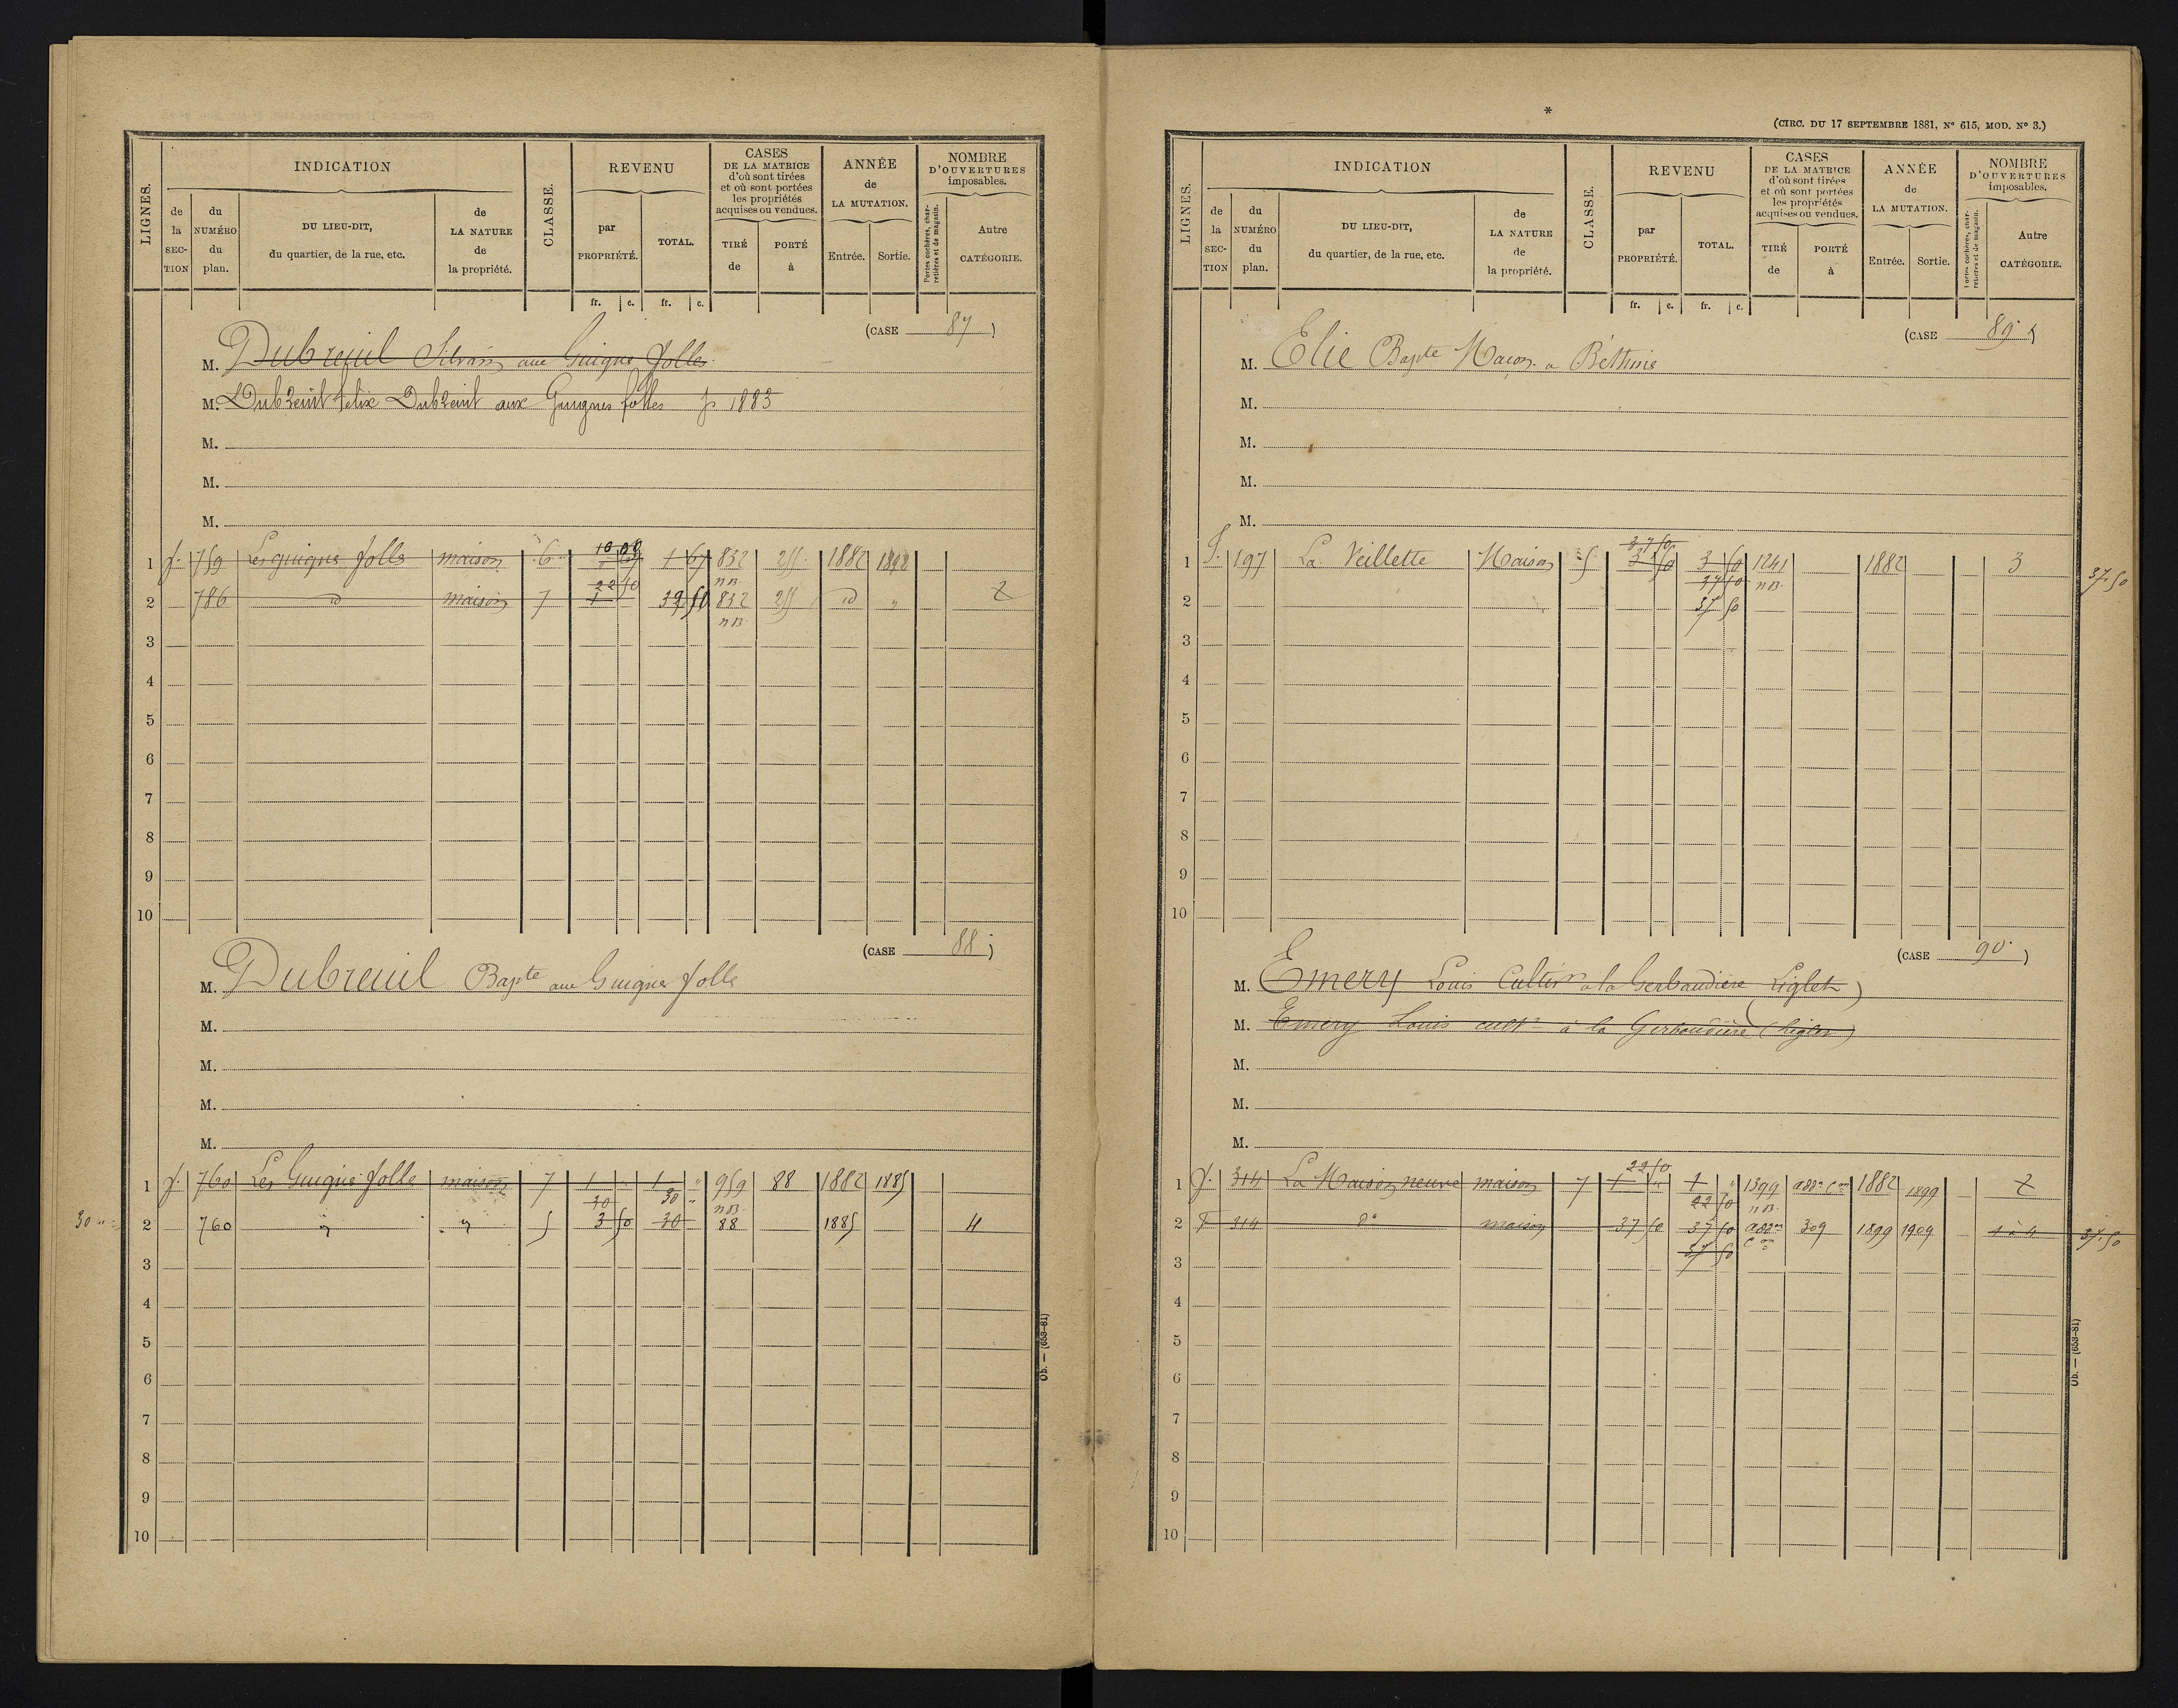 LIGNES.
INDICATION
de la SECTION
du NUMÉRO du plan.
DU LIEU-DIT, du quartier, de la rue, etc.
de LA NATURE de la propriété.
CLASSE.
REVENU
par PROPRIÉTÉ.
TOTAL.
fr. c. fr. c.
CASES DE LA MATRICE d'où sont tirées et où sont portées les propriétés acquises ou vendues.
TIRÉ de
PORTÉ à
ANNÉE de LA MUTATION.
Entrée. Sortie.
NOMBRE D'OUVERTURES imposables.
Portes cochères, charretières et de magasin.
Autre CATÉGORIE.
(CASE 87)
M. Dubreuil Silvain aux Guignes folles
M. Dubreuil Felix Dubreuil aux Guignes folles p 1883
M.
M.
M.
1 f. 759 Les guignes folles maison 6 10 1 67 832 255 1882 1892
22 50 nB.
2 786 id maison 7 1 32 50 832 255 id " 2
nB.
3
4
5
6
7
8
9
10
(CASE 88)
M. Dubreuil Bapte aux Guignes folles
M.
M.
M.
M.
1 f. 760 Les Guignes folles maison 7 1 1 " 959 88 1882 1885
30 30 " nB.
30 " 2 760 " " 5 3 50 30 88 1885 4
3
4
5
6
7
8
9
10
Ob. — (653-81)
*
(CIRC. DU 17 SEPTEMBRE 1881, N° 615, MOD. N° 3.)
LIGNES.
INDICATION
de la SECTION
du NUMÉRO du plan.
DU LIEU-DIT, du quartier, de la rue, etc.
de LA NATURE de la propriété.
CLASSE.
REVENU
par PROPRIÉTÉ.
TOTAL.
fr. c. fr. c.
CASES DE LA MATRICE d'où sont tirées et où sont portées les propriétés acquises ou vendues.
TIRÉ de
PORTÉ à
ANNÉE de LA MUTATION.
Entrée. Sortie.
NOMBRE D'OUVERTURES imposables.
Portes cochères, charretières et de magasin.
Autre CATÉGORIE.
(CASE 89)
M. Elie Bapte Maçon a Béthines
M.
M.
M.
M.
37 50
1 f. 197 La Veillette Maison 5 3 50 3 50 1241 1882 3
37 50 nB. 37.50
2 37 50
3
4
5
6
7
8
9
10
(CASE 90)
M. Emery Louis Cultivr a la Gerbaudière Liglet)
M. Emery Louis cultr à la Gerbaudière (Liglet)
M.
M.
M.
22 50
1 f. 314 La Maison neuve maison 7 1 " 1 " 1399 addon Con 1882 1899 2
22 50 nB.
2 F 314 do maison 37 50 37 50 addon Con 309 1899 1909 1 à 4 37.50
37 50
3
4
5
6
7
8
9
10
Ob. — (653-81)